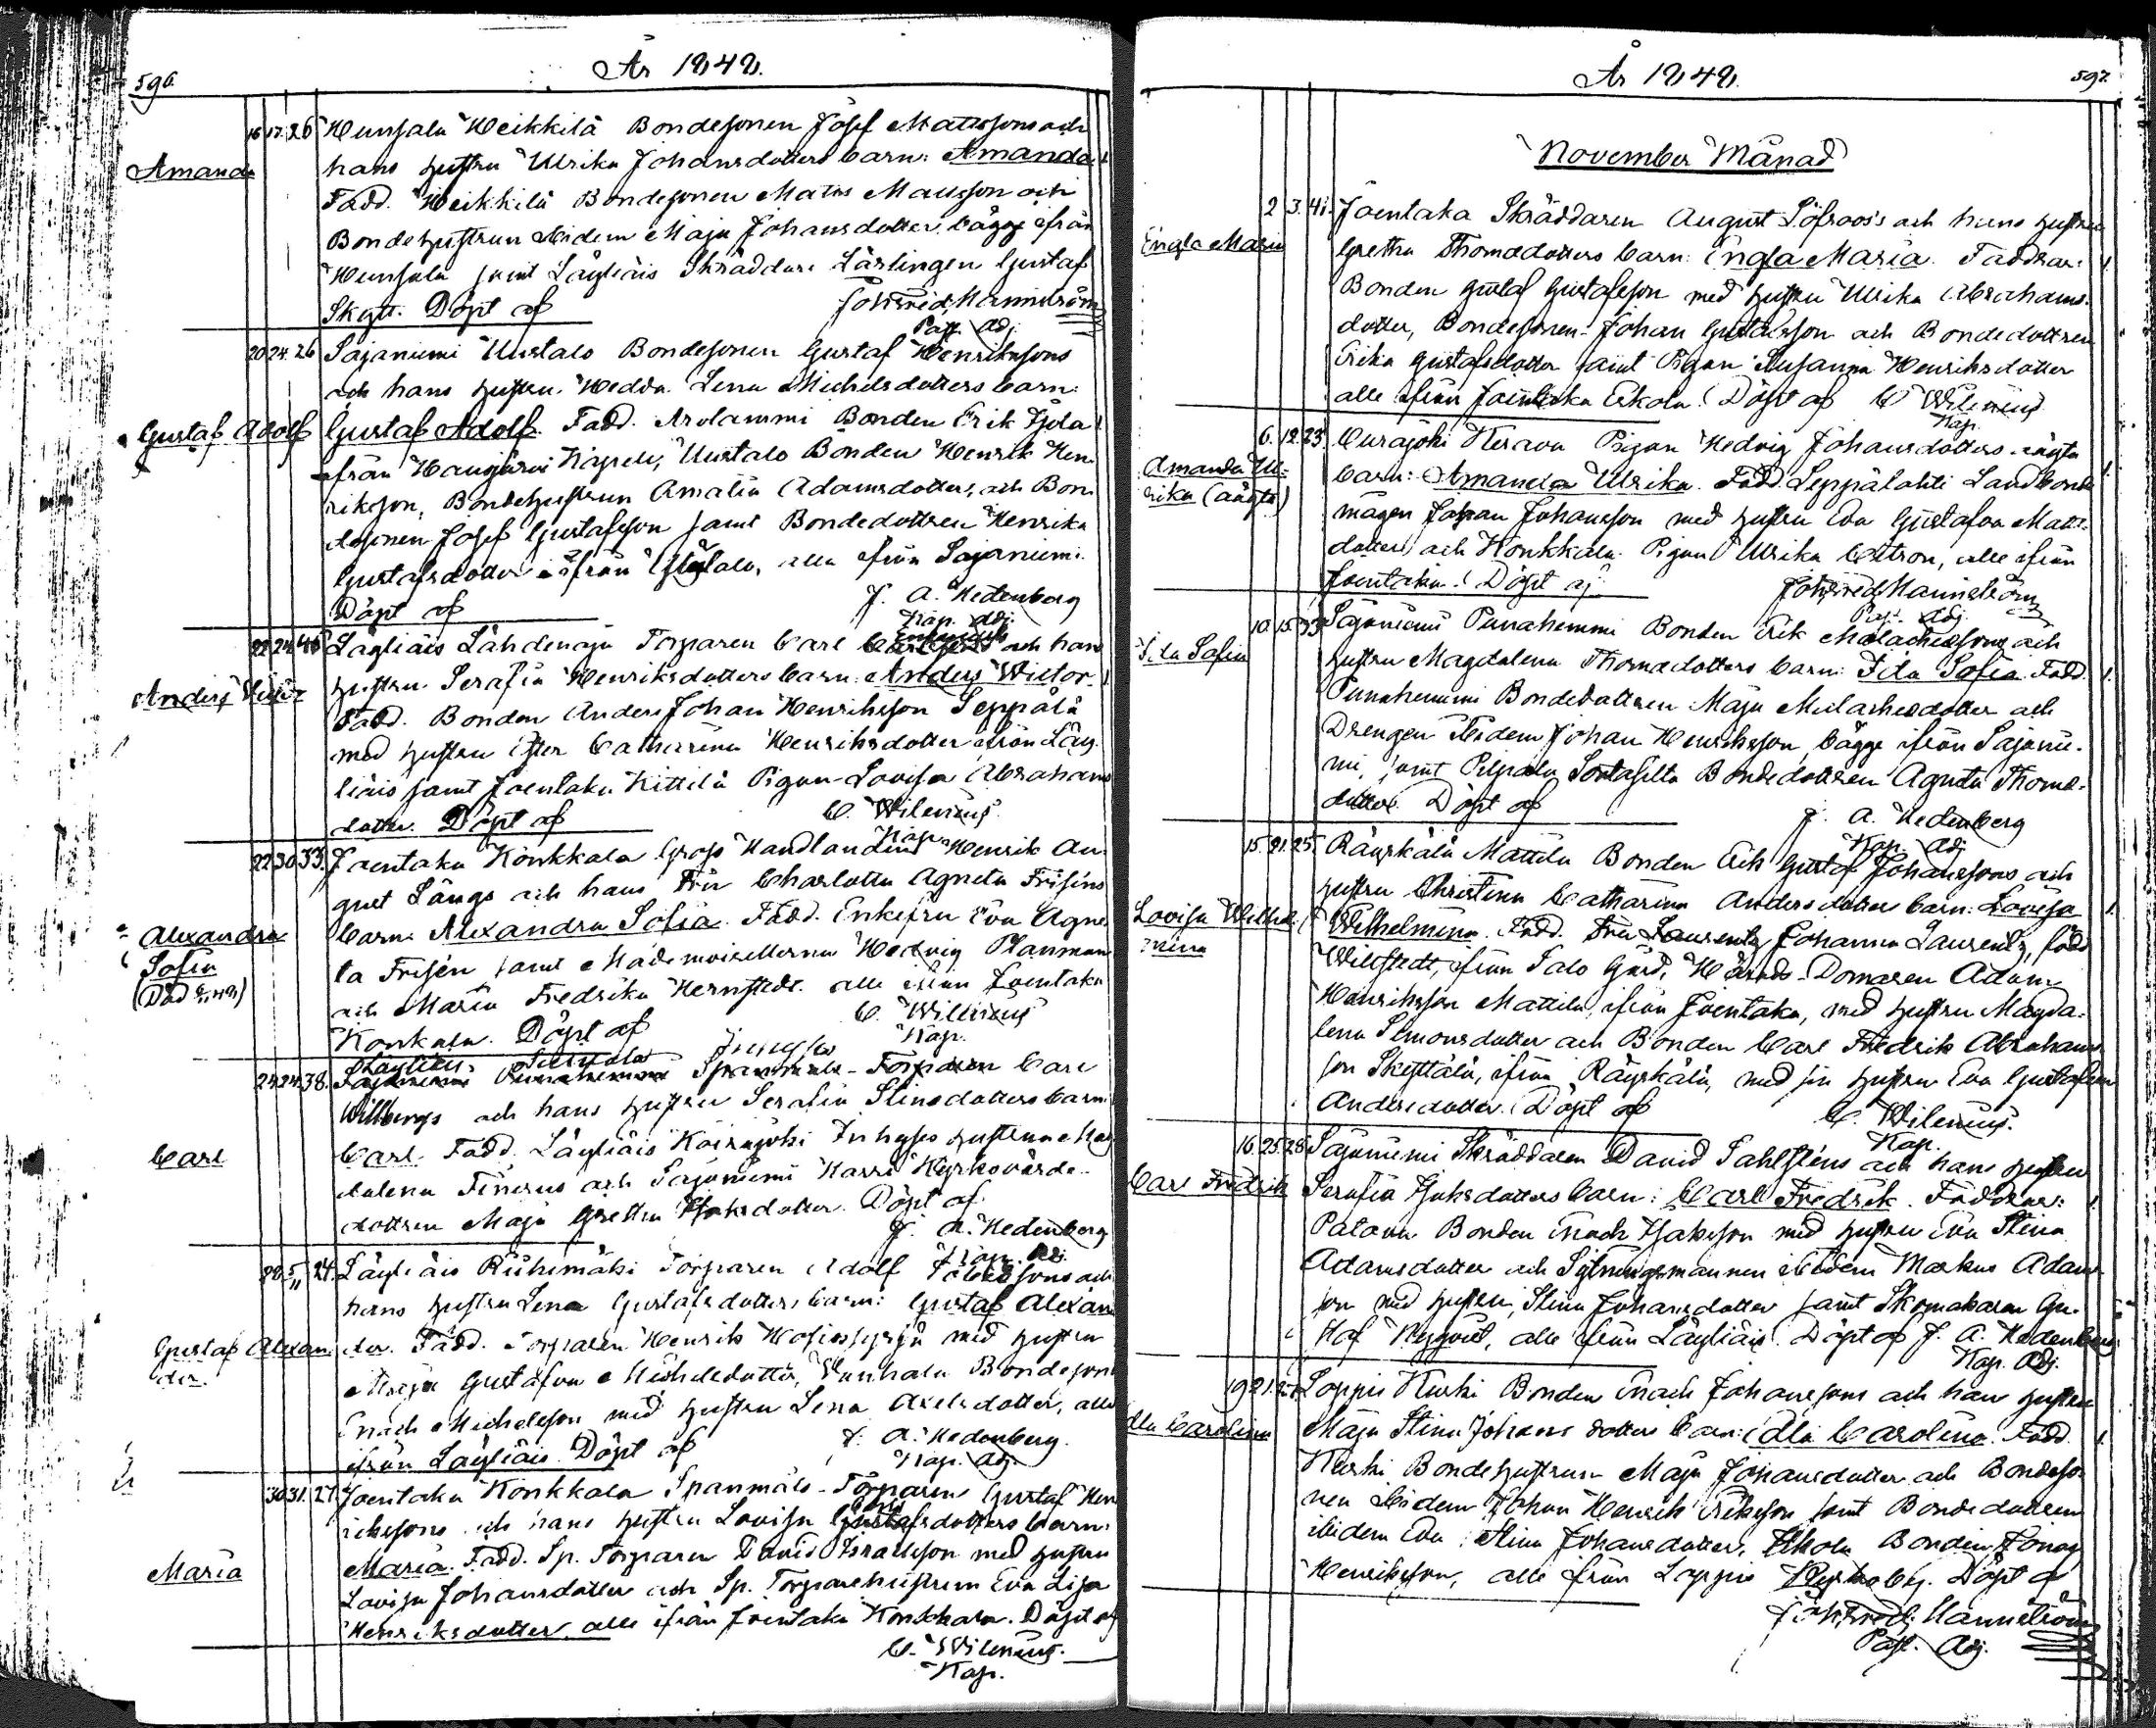 596.
År 1848.
16 17. 26
Hunsala Heikkilä Bondesonen Josef Mattssons och
Amanda
hans hustru Ulrika Johansdotters barn: Amanda
Fadd. Heikkilä Bondesonen Matts Mattsson och
Bondehustrun ibidem Maja Johansdotter, bägge ifrån
Hunsala samt Läyliäis Skräddare Lärlingen Gustaf
Skytt. Döpt af Joh. Fred. Mannström
Past. Adj.
20 24. 26
Sajaniemi Uustalo Bondesonen Gustaf Henrikssons
och hans hustru Hedda Lena Michelsdotters barn:
Gustaf Adolf
Gustaf Adolf. Fadd. Arolammi Bonden Erik Tjola
från Hausjärvi Kapell, Uustalo Bonden Henrik Hen
riksson, Bondehustrun Amalia Adamsdotter, och Bon
desonen Josef Gustafsson samt Bondedottren Henrika
Gustafsdotter ifrån alla ifrån Sajaniemi.
Döpt af J. A. Hedenberg
Kap. Adj.
22 24 46
Läyliäis Lähdenoja Torparen Carl och hans
Anders Victor
hustru Serafia Henriksdotters barn: Anders Victor.
Fadd. Bonden Anders Johan Henriksson Seppälä
med hustru Ester Catharina Henriksdotter ifrån Läy
liäis samt Joentaka Kittilä Pigan Lovisa Abrahams
dotter. Döpt af C. Wilenius
Kap.
22 30 33.
Joentaka Konkkala Grofs Handlanden Henrik Au
gust Långs och hans Fru Charlotta Agneta Frisens
Alexandra
Sofia
(Död 48)
barn: Alexandra Sofia. Fadd. Enkefru Eva Agne
ta Frisén samt Mademoisellerna Hedvig Planman
och Maria Fredrika Hernstedt. alle ifrån Joentaka
Konkala. Döpt af C. Wilenius
Kap.
24 24. 38.
Läyliäis Torparen Carl
Willbergs och hans hustru Serafia Stinsdotters barn
Carl
Carl. Fadd. Läyliäis Koirajoki Inhyses hustrun Mag
dalena Finerus och Sajaniemi Harri Kyrkovärds
dottren Maja Gretha Isaksdotter. Döpt af
J. A. Hedenberg
Kap. Adj.
28 5/11 24.
Läyliäis Riihimäki Torparen Adolf Jakobssons och
hans hustru Lena Gustafsdotters barn: Gustaf Alexan
Gustaf Alexan
der.
der. Fadd. Torparen Henrik med hustru
Maja Gustafva Michelsdotter, Vanhala Bondeson
Enoch Michelsson med hustru Lena Axelsdotter, alle
ifrån Läyliäis. Döpt af J. A. Hedenberg.
Kap. Adj.
30 31. 27.
Joentaka Konkkala Spanmåls-Torparens Gustaf Hen
rikssons och hans hustru Lovisa dotters barn:
Maria
Maria. Fadd. Sp. Torparen David Israelsson med hustru
Lovisa Johansdotter och Sp. Torparehustrun Eva Lisa
Henriksdotter, alle ifrån Joentaka Konkkala. Döpt af
C. Wilenius.
Kap.
År 1848.
597.
November Månad
2 3. 41.
Joentaka Skräddaren August Löfroos's och hans hustru
Engla Maria
Gretha Thomadotters barn: Engla Maria. Faddrar:
Bonden Gustaf Gustafsson med hustru Ulrika Abrahams
dotter, Bondesonen Johan Gustafsson och Bondedottren
Erika Gustafsdotter samt Pigan Susanna Henriksdotter
alle ifrån Joentaka Erkola. Döpt af C. Wilenius
Kap.
6. 12. 23.
Curajoki Kerava Pigan Hedvig Johansdotters oägta
Amanda Ul-
rika (oägta)
barn: Amanda Ulrika. Fadd. Leppälahti Landbonde
mågen Johan Johansson med hustru Eva Gustafva Matts
dotter, och Konkkala Pigan Ulrika alle ifrån
Joentaka. Döpt af Joh. Fred. Mannström
Past. Adj.
10. 15. 33
Sajaniemi Punahemmi Bonden Erik Malachiassons och
Ida Sofia
hustru Magdalena Thomadotters barn: Ida Sofia. Fadd.
Punahemmi Bondedottren Maja Malachiedotter och
Drengen ibidem Johan Henriksson, bägge ifrån Sajanie-
mi, samt Pilpala Sontasilta Bondedottren Agneta Thoma-
dotter. Döpt af J. A. Hedenberg
Kap. Adj.
15. 21. 25.
Räyskälä Mattila Bonden Erik Gustaf Johanssons och
hustru Christina Catharina Andersdotter barn: Lovisa
Lovisa Wilhel-
mina
Wilhelmina. Fadd. Fru Johanna Laurentz, född
Willstedt, ifrån Salo Gård, Härads-Domaren Adam
Henriksson Mattila, ifrån Joentaka, med hustru Magda-
lena Simonsdotter och Bonden Carl Fredrik Abrahams
son Skyttälä, ifrån Räyskälä, med sin hustru Eva Gustafva
Andersdotter. Döpt af C. Wilenius.
Kap.
16. 25. 28
Sajaniemi Skräddaren David Sahlstens och hans hustru
Carl Fredrik
Serafia Isaksdotters barn: Carl Fredrik. Faddrar:
Patava Bonden Enoch Isaksson med hustru Eva Stina
Adamsdotter och ibidem Markus Adams
son med hustru Stina Johansdotter samt Skomakaren Gu-
staf Nyqvist, alle ifrån Läyliäis. Döpt af J. A. Hedenberg
Kap. Adj.
19 21.
Loppis Kurki Bonden Enoch Johanssons och hans hustru
Alla Carolina
Maja Stina Johansdotters barn: Alla Carolina. Fadd.
Kurki Bondehustrun Maja Johansdotter och Bondeso
nen ibidem Johan Henrik Eriksson samt Bondedottren
ibidem Eva Stina Johansdotter, Bonden Jonas
Henriksson, alle ifrån Loppis Kyrkoby. Döpt af
Joh. Fred. Mannström
Past. Adj.